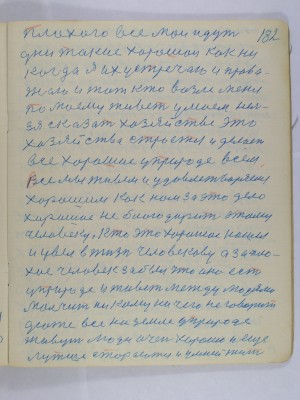 182
плохого все мои идут
дни такие хорошои как ни
когда я их устречаю и прова-
жаю и тот кто возле меня
по моему живет умеем нель-
зя сказат хозяйства это
хазяйства строются и делает
все хорошие у природе всем
все мы живем и удовлетворяем
хорошим как нам за это дело
хорошие не благодарит этому
человеку. Кто это хорошие нашел
и увел в жизн человекову а за пло-
хие человек забыл это оно ест
у природе и живет между людями
молчит никому ничего не говорит
даже все на земле у природе
живут люди очен хорошо и еще
лутше стораются и умней жит